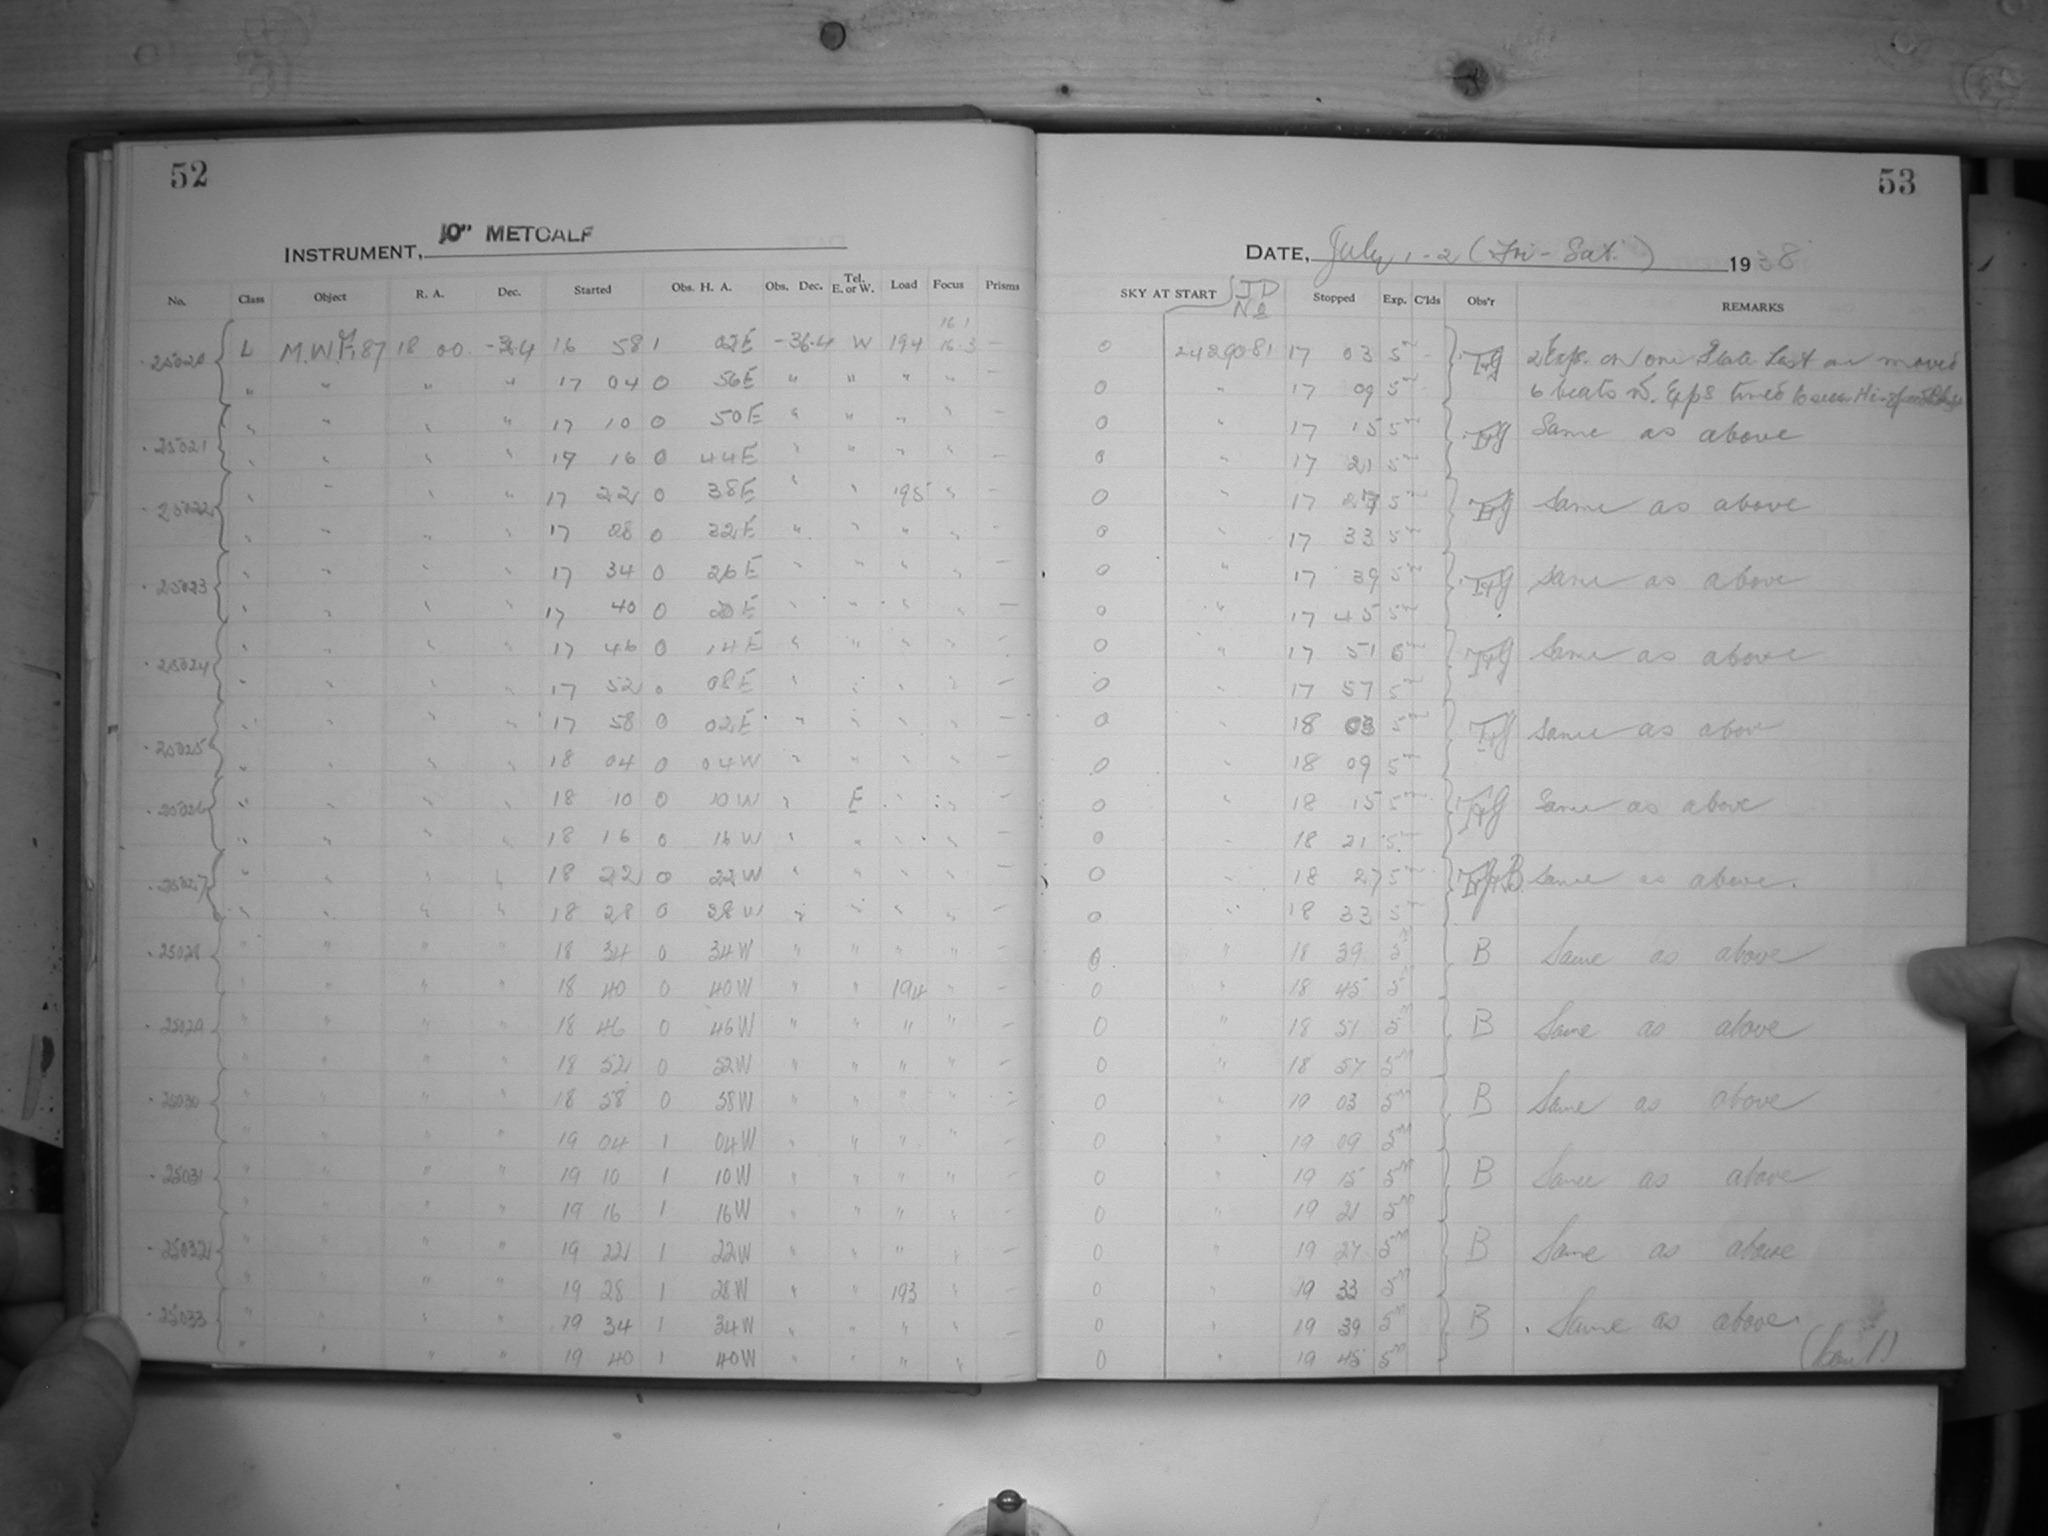 52
INSTRUMENT, 10" METCALF
No. Class Object R. A. Dec. Started Obs. H. A. Obs. Dec. Tel. E. or W. Load Focus Prisms
16.1
25020 L M.W.F. 187 18 00 -36.4 16 58 1 02E -36.4 W 194 16.3 —
" " " " 17 04 0 56E " " " " —
25021 " " " " 17 10 0 50E " " " " —
" " " " 17 16 0 44E " " " " —
25022 " " " " 17 22 0 38E " " 195 " —
" " " " 17 28 0 32E " " " " —
25023 " " " " 17 34 0 26E " " " " —
" " " " 17 40 0 20E " " " " —
25024 " " " " 17 46 0 14E " " " " —
" " " " 17 52 0 08E " " " " —
25025 " " " " 17 58 0 02E " " " " —
" " " " 18 04 0 04W " " " " —
25026 " " " " 18 10 0 10W " E " " —
" " " " 18 16 0 16W " " " " —
25027 " " " " 18 22 0 22W " " " " —
" " " " 18 28 0 28W " " " " —
25028 " " " " 18 34 0 34W " " " " —
" " " " 18 40 0 40W " " 194 " —
25029 " " " " 18 46 0 46W " " " " —
" " " " 18 52 0 52W " " " " —
25030 " " " " 18 58 0 58W " " " " —
" " " " 19 04 1 04W " " " " —
25031 " " " " 19 10 1 10W " " " " —
" " " " 19 16 1 16W " " " " —
25032 " " " " 19 22 1 22W " " " " —
" " " " 19 28 1 28W " " 193 " —
25033 " " " " 19 34 1 34W " " " " —
" " " " 19 40 1 40W " " " " —
53
DATE, July 1-2 (Fri-Sat.) 1938
SKY AT START JD No Stopped Exp. C'lds Obs'r REMARKS
0 2429081 17 03 5m 2 Exps. on one Plate Last one moved
0 " 17 09 5m 6 beats N. Exps timed to
0 " 17 15 5m Same as above
0 " 17 21 5m
0 " 17 27 5m Same as above
0 " 17 33 5m
0 " 17 39 5m Same as above
0 " 17 45 5m
0 " 17 51 5m Same as above
0 " 17 57 5m
0 " 18 03 5m Same as above
0 " 18 09 5m
0 " 18 15 5m Same as above
0 " 18 21 5m
0 " 18 27 5m Same as above.
0 " 18 33 5m
0 " 18 39 5m B Same as above
0 " 18 45 5
0 " 18 51 5m B Same as above
0 " 18 57 5m
0 " 19 03 5m B Same as above
0 " 19 09 5m
0 " 19 15 5m B Same as above
0 " 19 21 5m
0 " 19 27 5m B Same as above
0 " 19 33 5m
0 " 19 39 5m B Same as above.
0 " 19 45 5m (Cont)